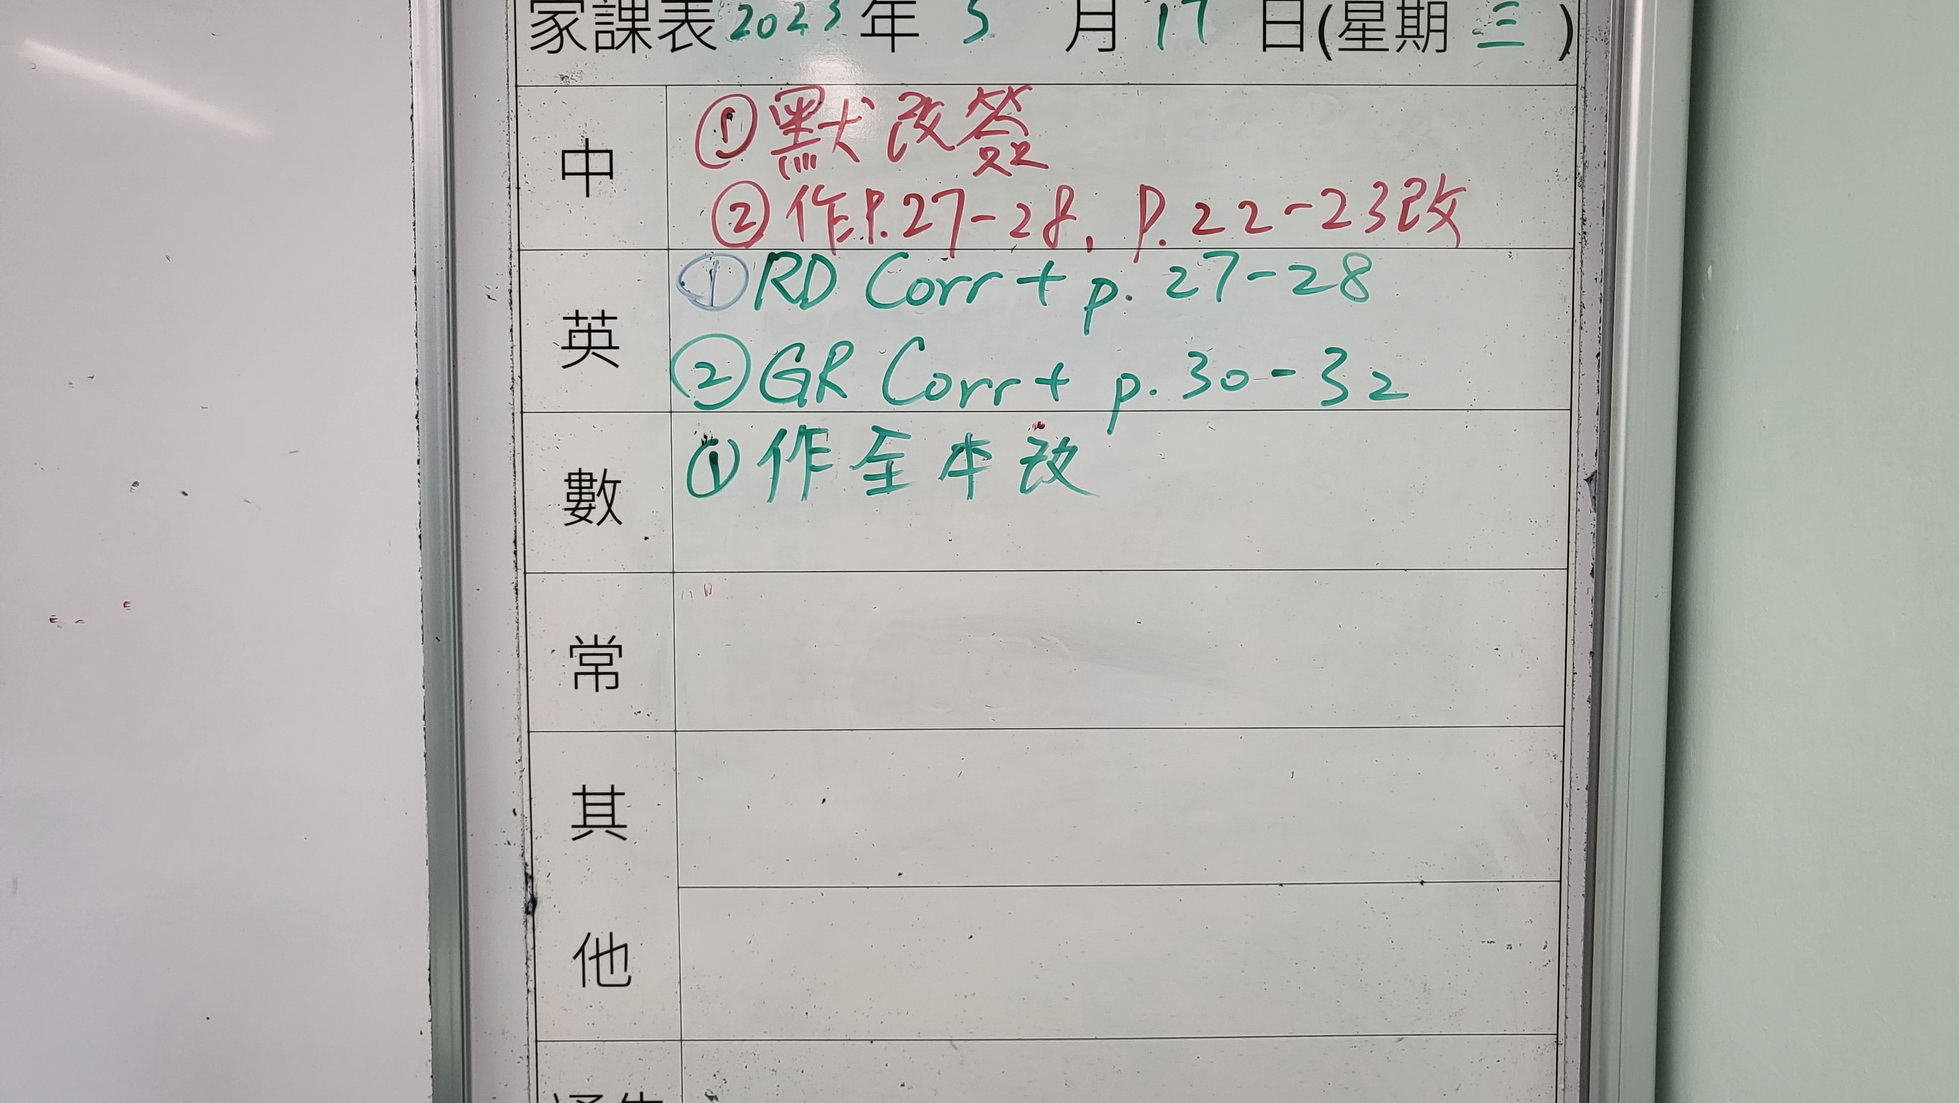 家課表 2023 年 5 月 17 日(星期 三 )
中
① 默 改 簽
② 作P.27-28, P.22-23改
英
① RD Corr + p. 27-28
② GR Corr + p. 30-32
數
① 作 全 本 改
常
其
他
通告